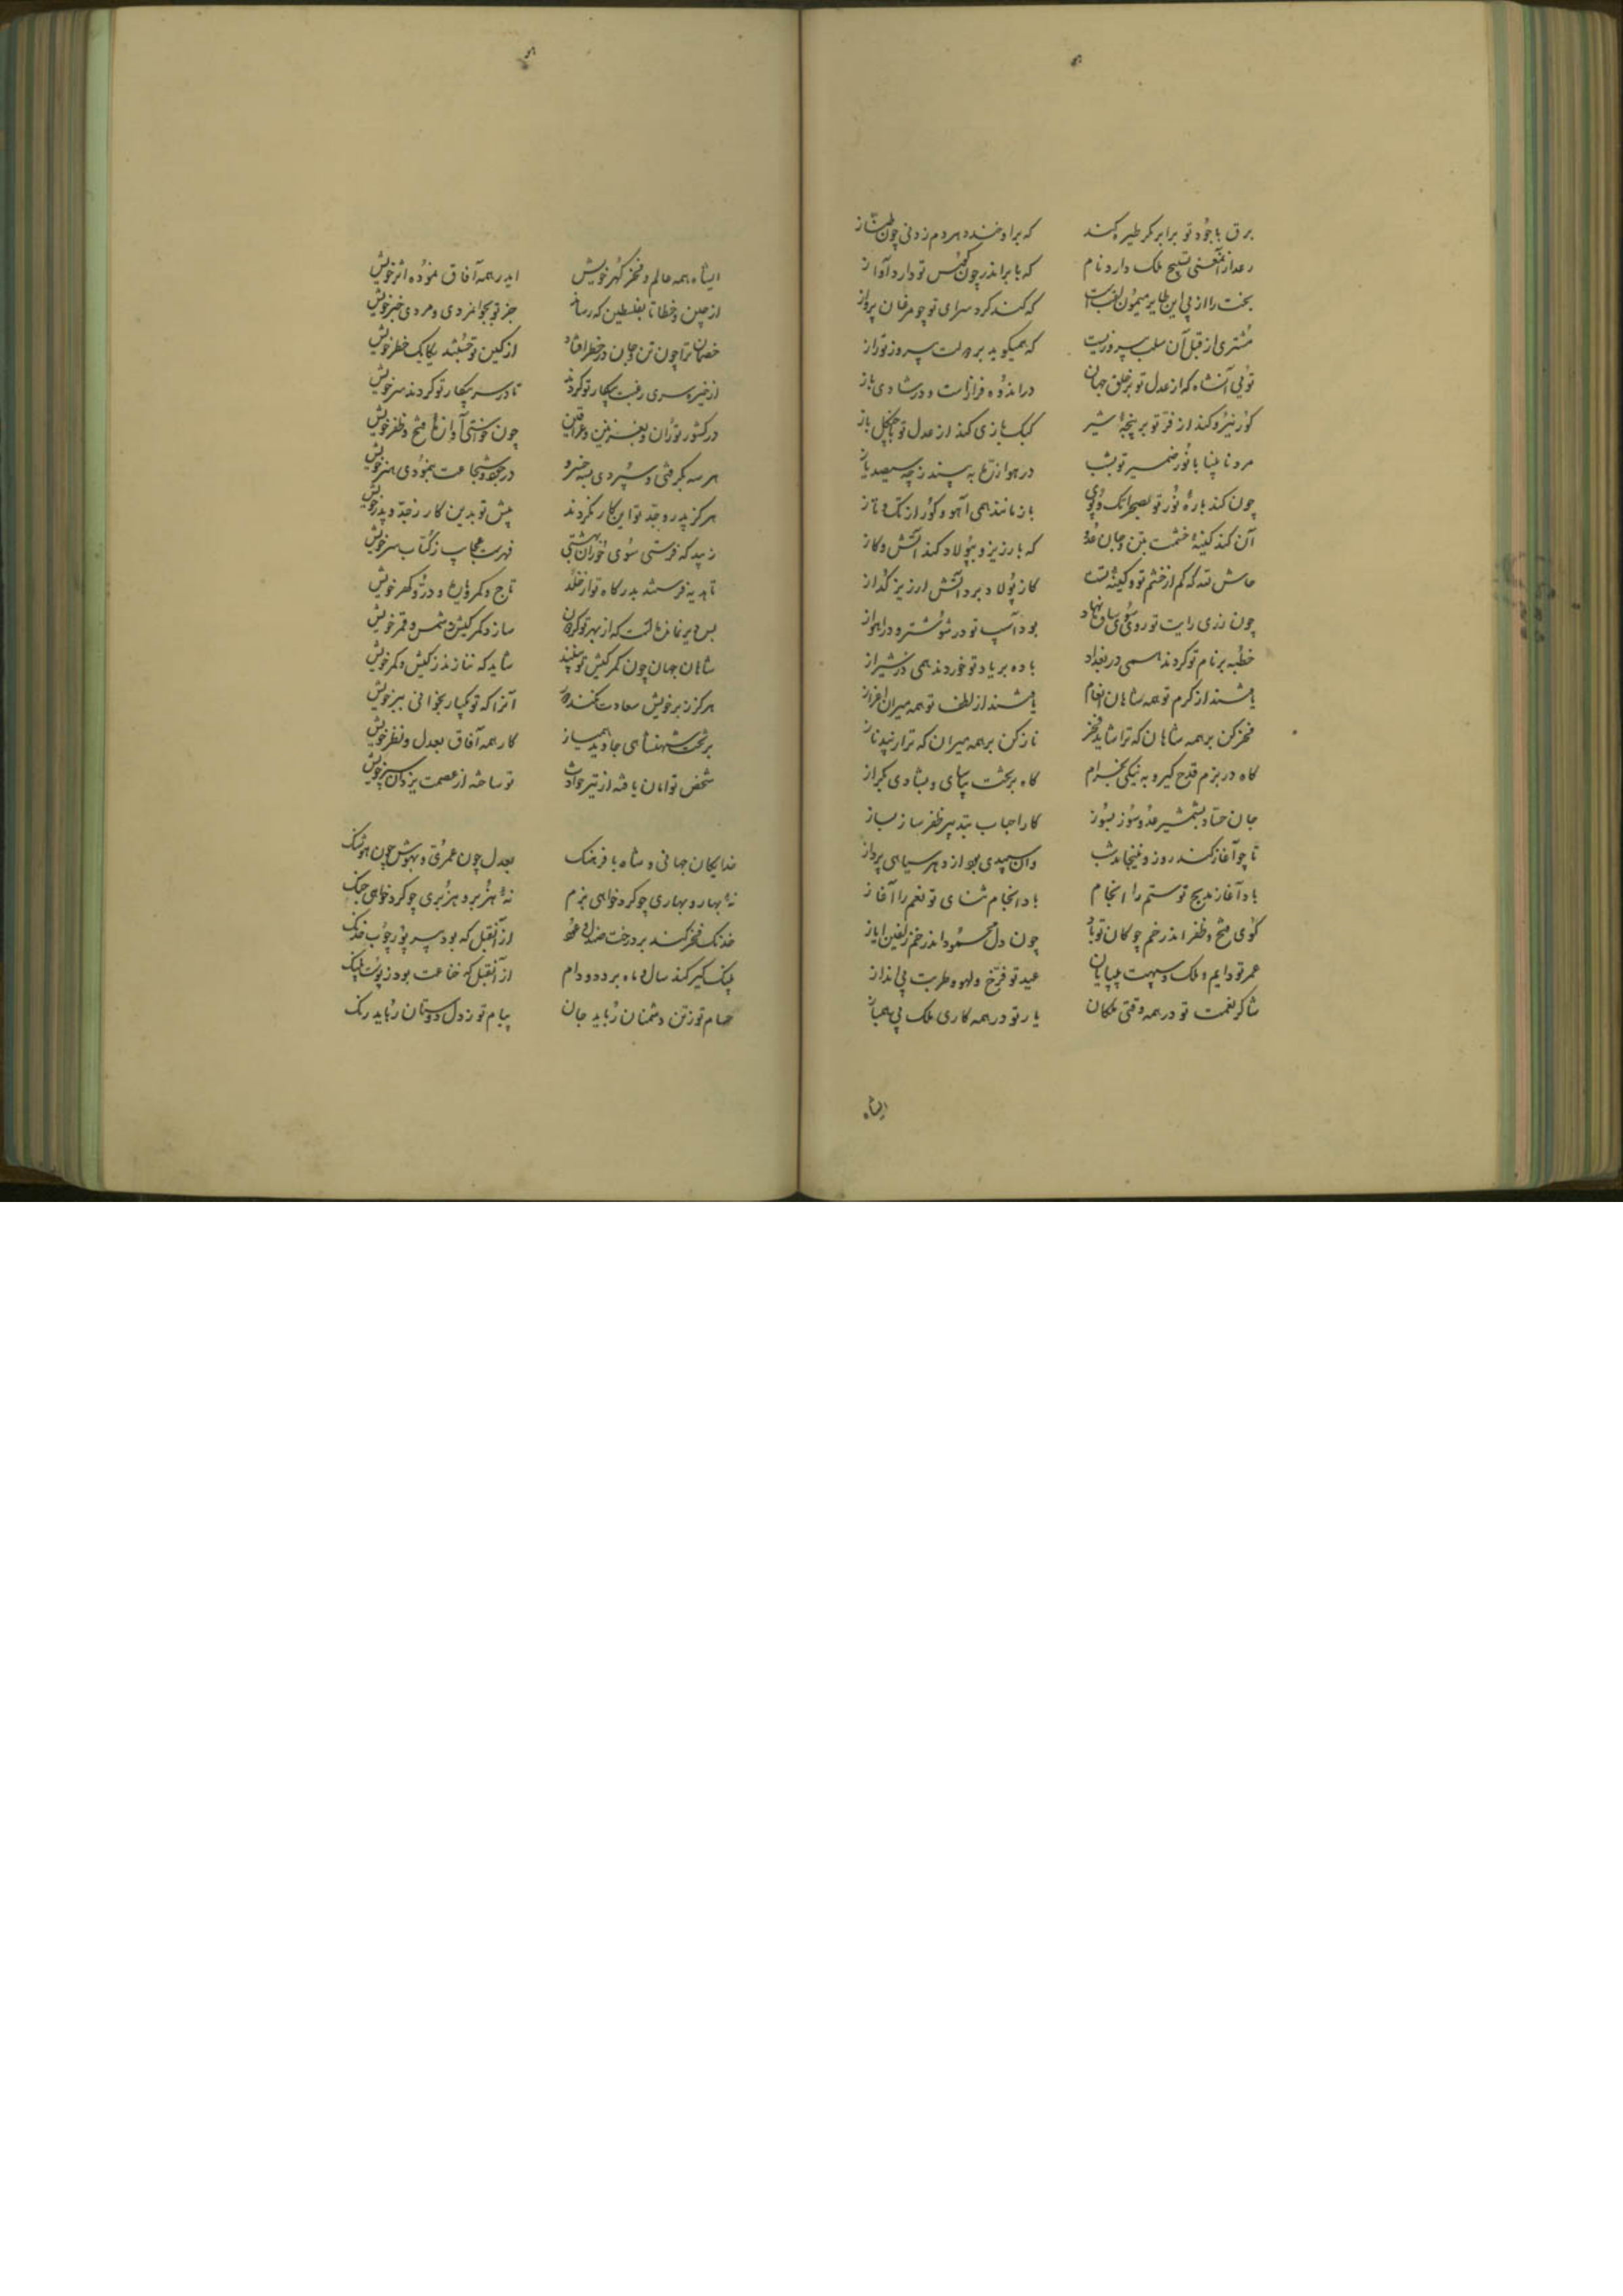 برق با جود تو برابر کر طیره کند که برا و خندد هر دم زدنی چون طناز
رعد از آنمعنی تسبیح ملک دارد نام که بابر اندر چون کوس تو دارد آواز
بخت را از پی این طایر میمون لقبست که کند کرد سرای تو چو مرغان پرواز
مشتری از قبل آن سلب پیروزیست که همیکوید بر دولت پیروز تو راز
توئی آنشاه که از عدل تو بر خلق جهان در اندوه فرازاست و در شادی باز
کور نیرو کند از فر تو بر پنجۀ شیر کبک بازی کند از عدل تو با چنکل باز
مرد نابینا با نور ضمیر تو بشب در هوا زاغ به بیند ز چه سیصد یاز
چون کند باره تو بصحرا تک و پوی باز ماند همی آهو و کور از تک و تاز
آن کند کینۀ خشمت بتن و جان عدو که بارزیز و بپولاد کند آتش و کاز
حاش لله که کم از خشم تو و کینۀ تست کاز پولاد بر و آتش ارزیز کداز
چون زدی رایت تو روی سوی نهاد بود اسپ تو در شوشتر و در اهواز
خطبه بر نام تو کردند همی در بغداد باده بر یاد تو خوردند همی در شیراز
باشند از کرم تو همه شاهان انعام باشند از لطف تو همه میران اعزاز
فخر کن بر همه شاهان که ترا شاید فخر ناز کن بر همه میران که ترا زیبد ناز
کاه در بزم قدح کیر و به نیکی بخرام کاه بر تخت بپای و بشادی بکراز
جان حساد بشمشیر عدو سوز بسوز کار احباب بتدبیر ظفر ساز بساز
تا چو آغاز کند روز و بینجامد شب وان سپیدی بود از دهر سیاهی پرداز
باد آغاز مدیح تو ستم را انجام باد انجام ثنای تو نعم را آغاز
کوی فتح و ظفر اندر خم چوکان تو باد چون دل محمود اندر خم زلفین ایاز
عمر تو دایم و ملک و سپهت بیپایان عید تو فرخ و لهو و طربت بی انداز
شاکر نعمت تو در همه وقتی ملکان یار تو در همه کاری ملک بی انباز
ایشاه
ایشاه همه عالم و فخر کهر خویش اندر همه آفاق نموده اثر خویش
از چین و خطا تا بفلسطین که رساند جز تو بجوانمردی و مردی خبر خویش
خصمان ترا چون تن و جان در خطر افتاد از کین تو جستند یکایک خطر خویش
از خیره سری رغبت پیکار تو کردند تا در سر پیکار تو کردند سر خویش
در کشور توران و بغزنین و عراقین چون خواستی آوازۀ فتح و ظفر خویش
هر سه بکرفتی و سپردی بسه خسرو در جود و شجاعت بنمودی هنر خویش
هرکز پدر و جد تو این کار نکردند پیش تو بدین کار ز جد و پدر خویش
زیبد که فرستی سوی حوران بهشتی فهرست عجایب ز کتاب سمر خویش
تا هدیه فرستند بدرکاه تو از خلد تاج و کمر و یاره و در و کهر خویش
بس دیر نماندست که از بهر تو کردون سازد کمر کیش ز شمس و قمر خویش
شاهان جهان چون کمر کیش تو بینند شاید که ننازند ز کیش و کمر خویش
هرکز زبر خویش سعادت نکند دور آنرا که تو یکبار بخوانی ببر خویش
بر تخت شهنشاهی جاوید همیساز کار همه آفاق بعدل و نظر خویش
شخص تو امان یافته از تیر حوادث تو ساخته از عصمت یزدان سپر خویش
خدایکان جهانی و شاه با فرهنک بعدل چون عمری و بهوش چون هوشنک
نۀ بهار و بهاری چو کرد خواهی بزم نۀ هزبر و هزبری چو کرد خواهی جنک
خدنک فخر کند بر درخت صندل و عود از آنقبل که بود تیر پور چوب خدنک
پلنک کبر کند سال و ماه بر دد و دام از آنقبل که خفتانت بود ز پوست پلنک
حسام تو ز تن دشمنان رباید جان پیام تو ز دل دوستان رباید رنک